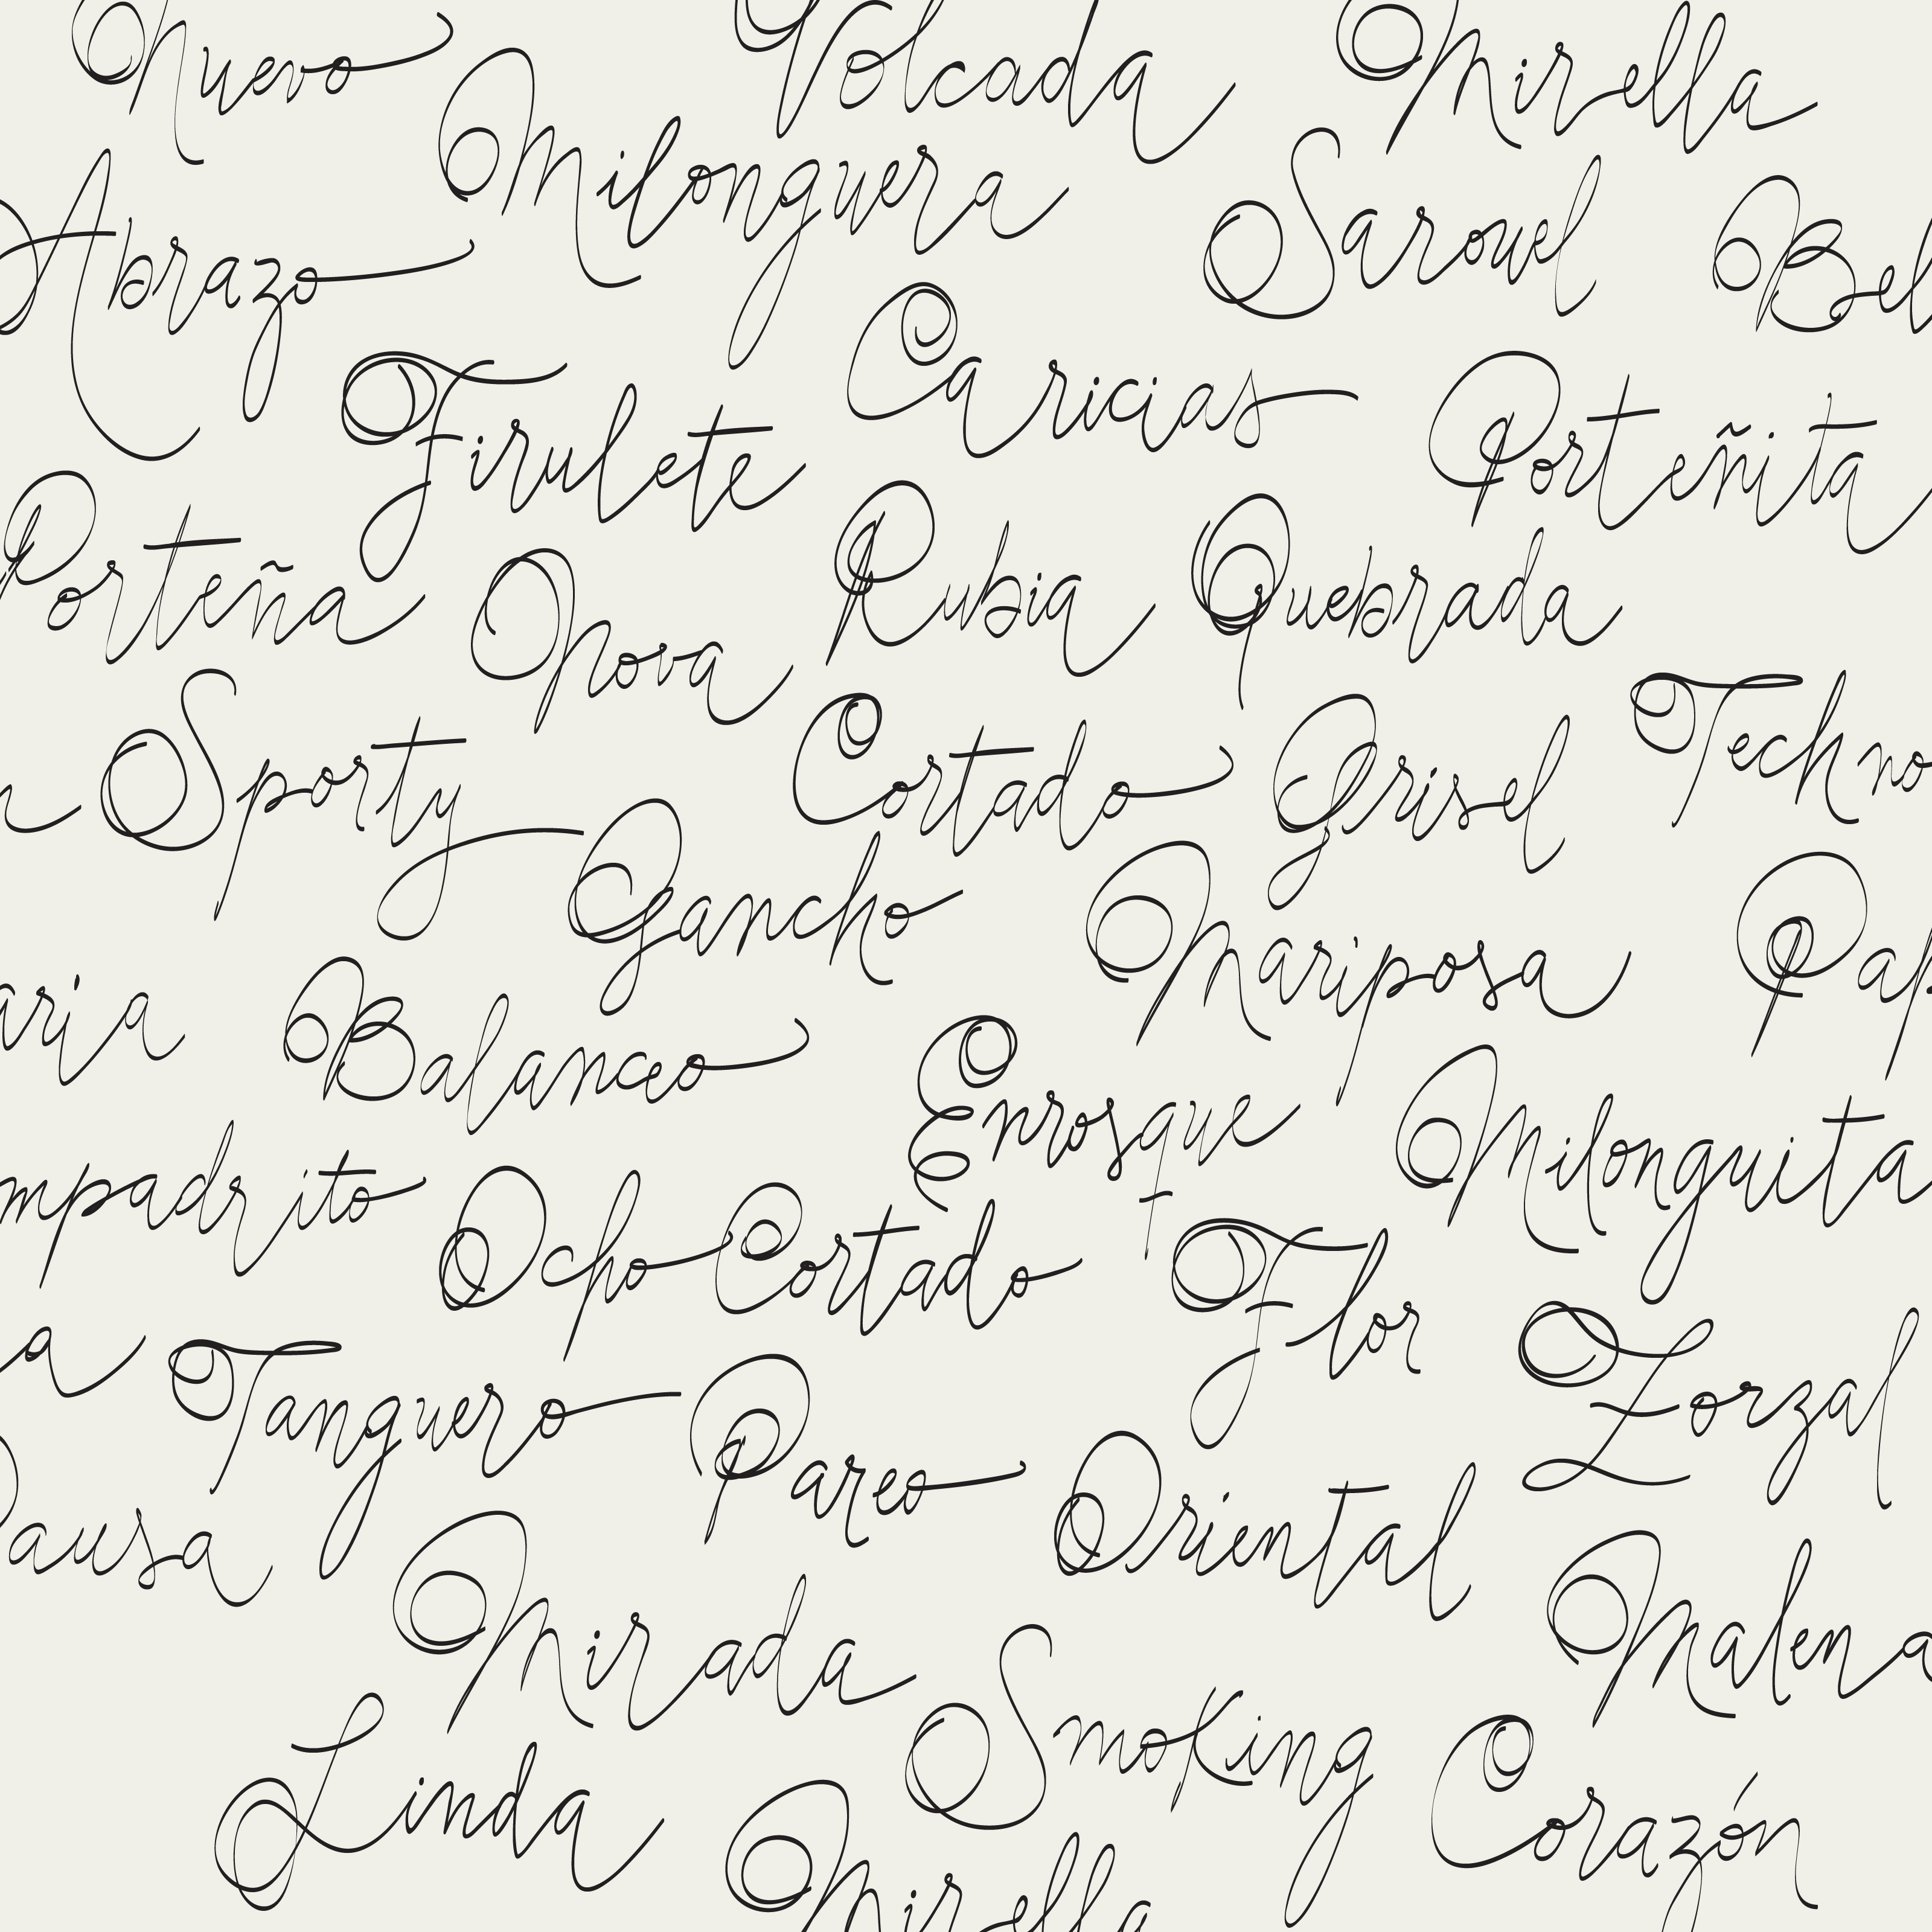 Nuevo Volcada Mirella
Milonguera
Abrazo Sarud Bel
Firulete Caricias Porteñita
Porteña Opora Rubia Quebrada
Sporty Cortado Grisel Techno
Gancho Mariposa Pa
Balanceo Enrosque Milonguita
mpadrito Ocho Cortado Flor
Tanguero Pareo Oriental Zorzal
ausa Mirada Malena
Linda Smoking Corazón
Mirella